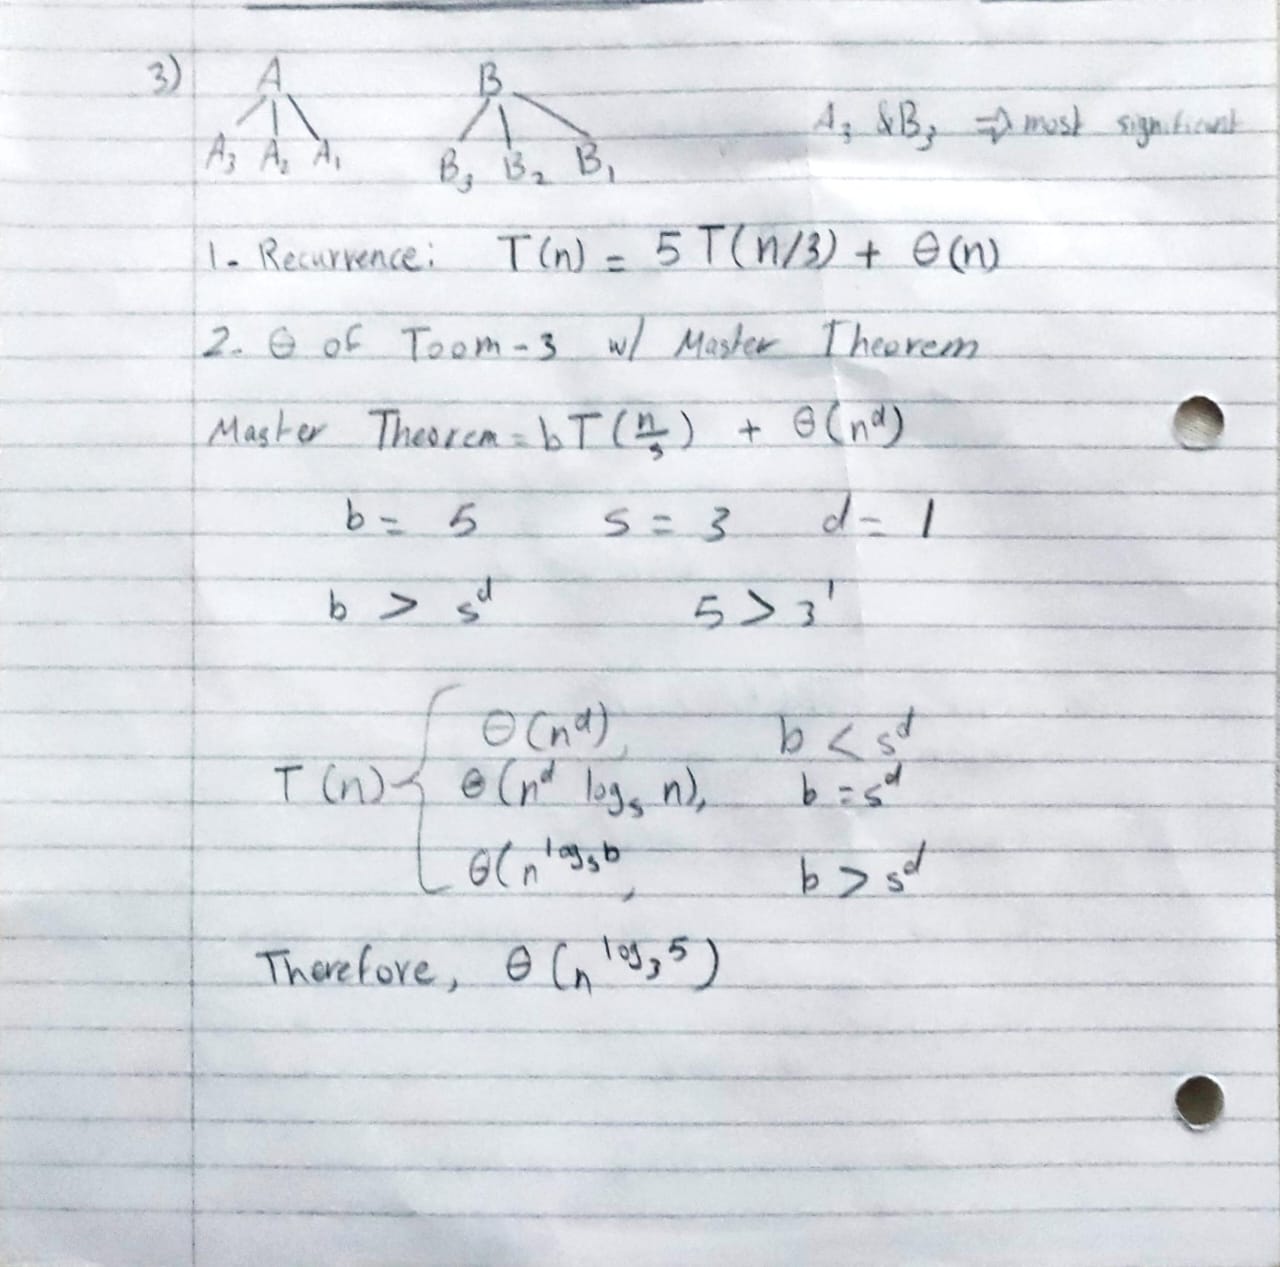 3) A B
A₃ A₂ A₁ B₃ B₂ B₁ A₃ & B₃ ⇒ most significant
1. Recurrence: T(n) = 5T(n/3) + Θ(n)
2. Θ of Toom-3 w/ Master Theorem
Master Theorem = bT(n/s) + Θ(n^d)
b = 5 s = 3 d = 1
b > s^d 5 > 3^1
Θ(n^d), b < s^d
T(n) { Θ(n^d log_s n), b = s^d
Θ(n^log_s b, b > s^d
Therefore, Θ(n^log_3 5)